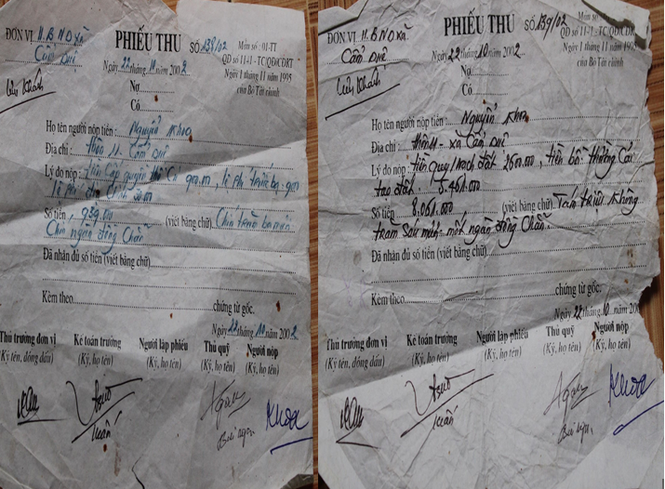 ĐƠN VỊ U.B ND Xã
Cẩm Duệ
PHIẾU THU
SỐ 138/02
Mẫu số 01-TT
QĐ số 1141-TC/QĐ/CĐKT
Ngày 1 tháng 11 năm 1995
của Bộ Tài chính
Ngày 22 tháng 10 năm 2002
Nợ
Có
Họ tên người nộp tiền: Nguyễn Khoa
Địa chỉ: thôn 11 Cẩm Duệ
Lý do nộp: tiền Cấp quyền
lệ phí
Số tiền: 939.000 (viết bằng chữ) Chín trăm ba mươi
Chín ngàn đồng Chẵn
Đã nhận đủ số tiền (viết bằng chữ)
Kèm theo chứng từ gốc.
Ngày 22 tháng 10 năm 2002
Thủ trưởng đơn vị Kế toán trưởng Người lập phiếu Thủ quỹ Người nộp
(Ký tên, đóng dấu) (Ký, họ tên) (Ký, họ tên) (Ký, họ tên) (Ký, họ tên)
Tuấn
Khoa
ĐƠN VỊ U.B ND Xã
Cẩm Duệ
PHIẾU THU
SỐ 139/02
Mẫu số
QĐ số 1141-TC/QĐ/CĐKT
Ngày 1 tháng 11 năm 1995
của Bộ Tài chính
Ngày 22 tháng 10 năm 2002
Nợ
Có
Họ tên người nộp tiền: Nguyễn Khoa
Địa chỉ: thôn 11 - xã Cẩm Duệ
Lý do nộp: tiền quy hoạch đất 2600.000, tiền bồi thường Cải
tạo đất. 5.461.000
Số tiền 8.061.000 (viết bằng chữ) Tám triệu không
trăm sáu mươi một ngàn đồng Chẵn.
Đã nhận đủ số tiền (viết bằng chữ)
Kèm theo chứng từ gốc.
Ngày 22 tháng 10 năm 2002
Thủ trưởng đơn vị Kế toán trưởng Người lập phiếu Thủ quỹ Người nộp
(Ký tên, đóng dấu) (Ký, họ tên) (Ký, họ tên) (Ký, họ tên) (Ký, họ tên)
Tuấn
Khoa